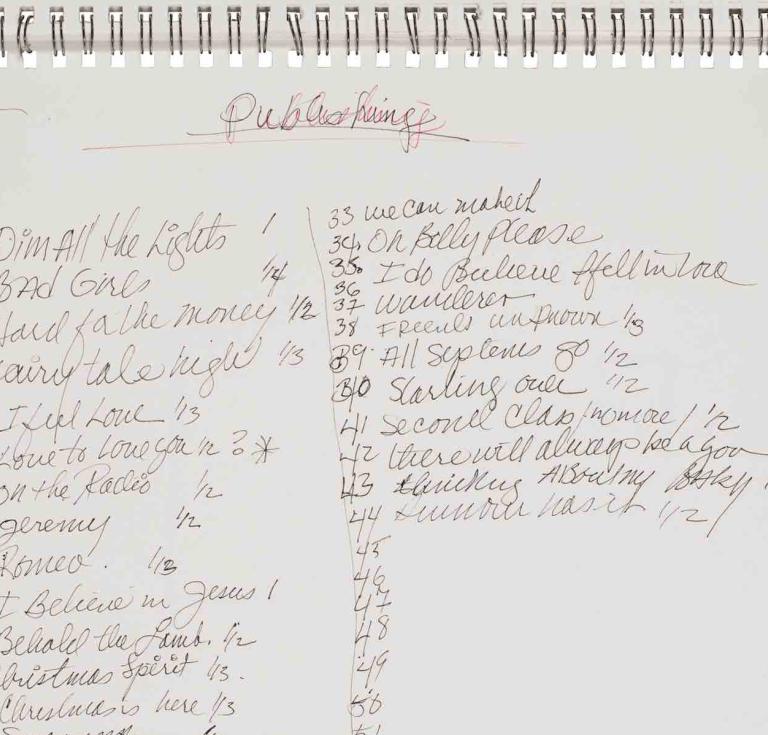 Publishings
Dim All the Lights 1
BAd Girls 1/4
Hard fa the money 1/2
Fairy tale high 1/3
I feel Love 1/3
Love to love you 1/2 ? *
on the Radio 1/2
Jeremy 1/2
Romeo. 1/3
I Believe in Jesus 1
Behold the Lamb. 1/2
Christmas Spirit 1/3.
Christmas is here 1/3
33 we can
34. Oh Billy Please
35. I do Believe I fell in love
36
37 wanderer
38 unknown 1/3
39. All Systems go 1/2
40 Starting over 1/2
41 Second Class no more / 1/2
42 there will always be a you
43 thinking About my
44 has it 1/2
45
46
47
48
49
50
51